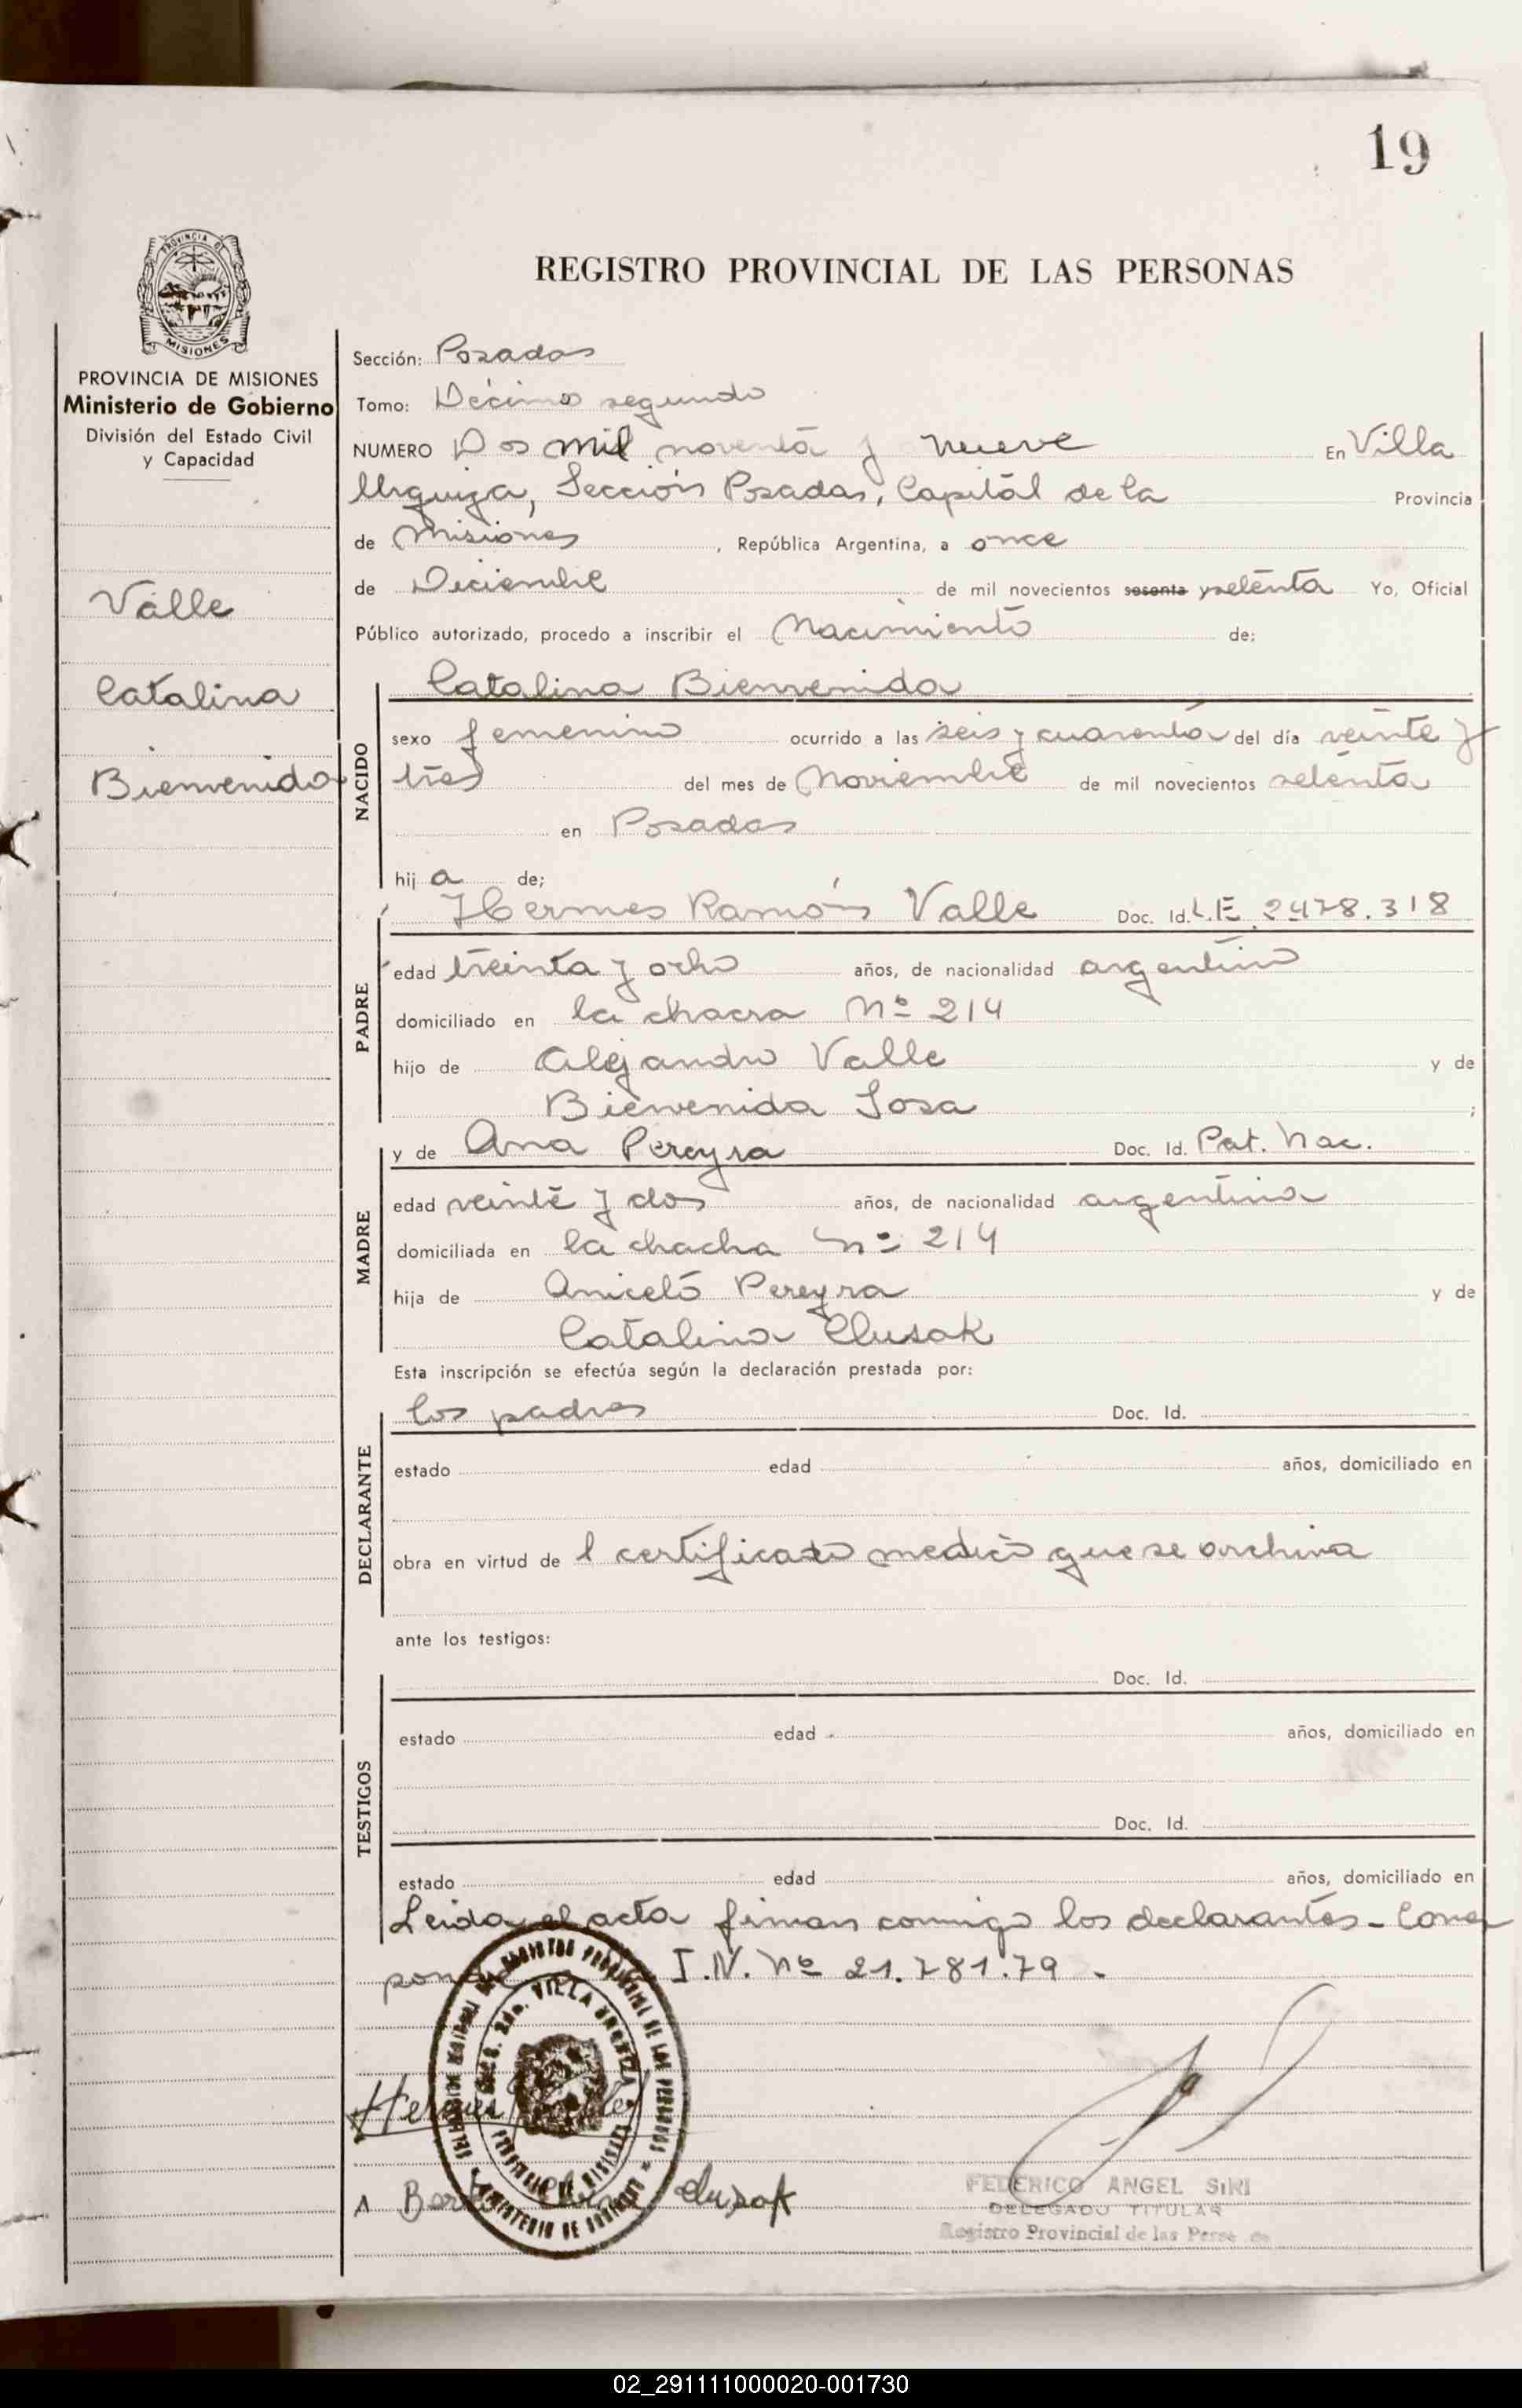 19
PROVINCIA DE
MISIONES
PROVINCIA DE MISIONES
Ministerio de Gobierno
División del Estado Civil
y Capacidad
Valle
Catalina
Bienvenida
REGISTRO PROVINCIAL DE LAS PERSONAS
Sección: Posadas
Tomo: Décimo segundo
NUMERO Dos mil noventa y nueve En Villa
Urquiza, Sección Posadas, Capital de la Provincia
de Misiones, República Argentina, a once
de Diciembre de mil novecientos sesenta y setenta Yo, Oficial
Público autorizado, procedo a inscribir el Nacimiento de:
NACIDO
Catalina Bienvenida
sexo femenino ocurrido a las seis y cuarenta del día veinte y
tres del mes de Noviembre de mil novecientos setenta
en Posadas
hij a de;
PADRE
Hermes Ramón Valle Doc. Id. L.E 2478.318
edad treinta y ocho años, de nacionalidad argentino
domiciliado en la chacra Nº 214
hijo de Alejandro Valle y de
Bienvenida Sosa ;
MADRE
y de Ana Pereyra Doc. Id. Pat. Nac.
edad veinte y dos años, de nacionalidad argentina
domiciliada en la chacha nº 214
hija de Aniceto Pereyra y de
Catalina Clusok
Esta inscripción se efectúa según la declaración prestada por:
DECLARANTE
los padres Doc. Id.
estado edad años, domiciliado en
obra en virtud de l certificado medico que se archiva
ante los testigos:
TESTIGOS
Doc. Id.
estado edad años, domiciliado en
Doc. Id.
estado edad años, domiciliado en
Leida el acta firman conmigo los declarantes - Corres
ponde I.N. Nº 21.781.79 -
Hermes
A
FEDERICO ANGEL SIRI
DELEGADO TITULAR
Registro Provincial de las Personas
02_291111000020-001730